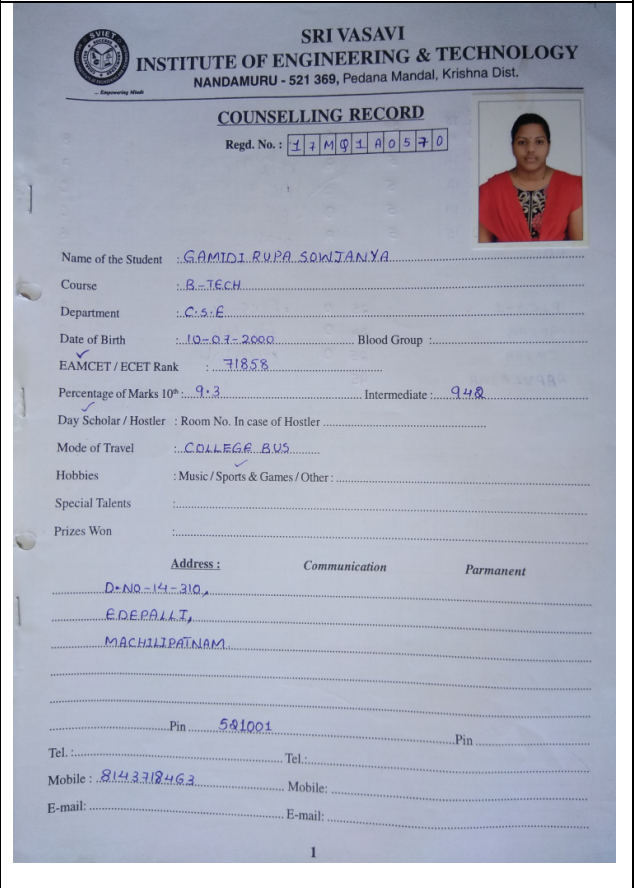 SVIET
... Empowering Minds
SRI VASAVI
INSTITUTE OF ENGINEERING & TECHNOLOGY
NANDAMURU - 521 369, Pedana Mandal, Krishna Dist.
COUNSELLING RECORD
Regd. No. : 17MQ1A0570
Name of the Student : GAMIDI RUPA SOWJANYA
Course : B-TECH
Department : C.S.E
Date of Birth : 10-07-2000 Blood Group :
EAMCET / ECET Rank : 71858
Percentage of Marks 10th : 9.3 Intermediate : 942
Day Scholar / Hostler : Room No. In case of Hostler
Mode of Travel : COLLEGE BUS
Hobbies : Music / Sports & Games / Other :
Special Talents :
Prizes Won :
Address : Communication Parmanent
D.NO-14-310,
EDEPALLI,
MACHILIPATNAM
Pin 521001 Pin
Tel. : Tel.:
Mobile : 8143718463 Mobile:
E-mail: E-mail:
1